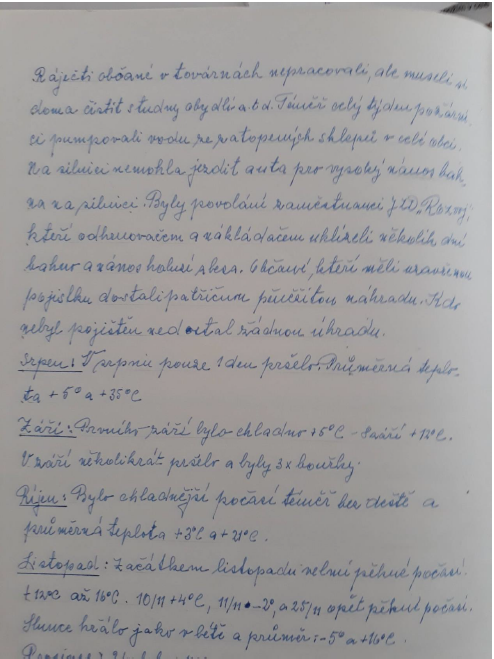 Ráječtí občané v továrnách nepracovali, ale museli si
doma čistit studny obydlí a.t.d. Téměř celý týden požární-
ci pumpovali vodu ze zatopených sklepů v celé obci.
Na silnici nemohla jezdit auta pro vysoký nános bah-
na na silnici. Byly povoláni zaměstnanci JZD „Rozvoj"
kteří odhrnovačem a nakládačem uklízeli několik dní
bahno a nános haluzí z lesa. Občané, kteří měli uzavřenou
pojistku dostali patřičnou peněžitou náhradu. Kdo
nebyl pojištěn nedostal žádnou úhradu.
Srpen: V srpnu pouze 1 den pršelo. Průměrná teplo-
ta +5° a +35°C
Září: Prvního září bylo chladno +5°C - září +12°C.
V září několikrát pršelo a byly 3x bouřky.
Říjen: Bylo chladnější počasí téměř bez deště a
průměrná teplota +3°C a +21°C.
Listopad: Začátkem listopadu velmi pěkné počasí
+12°C až 16°C. 10/11 +4°C, 11/11 -2°, a 25/11 opět pěkné počasí.
Slunce hrálo jako v létě a průměr: -5° a +16°C.